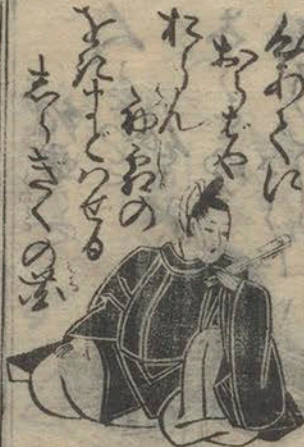 心あてに
おらばや
おらん
初霜の
をきまどハせる
しらぎくの花